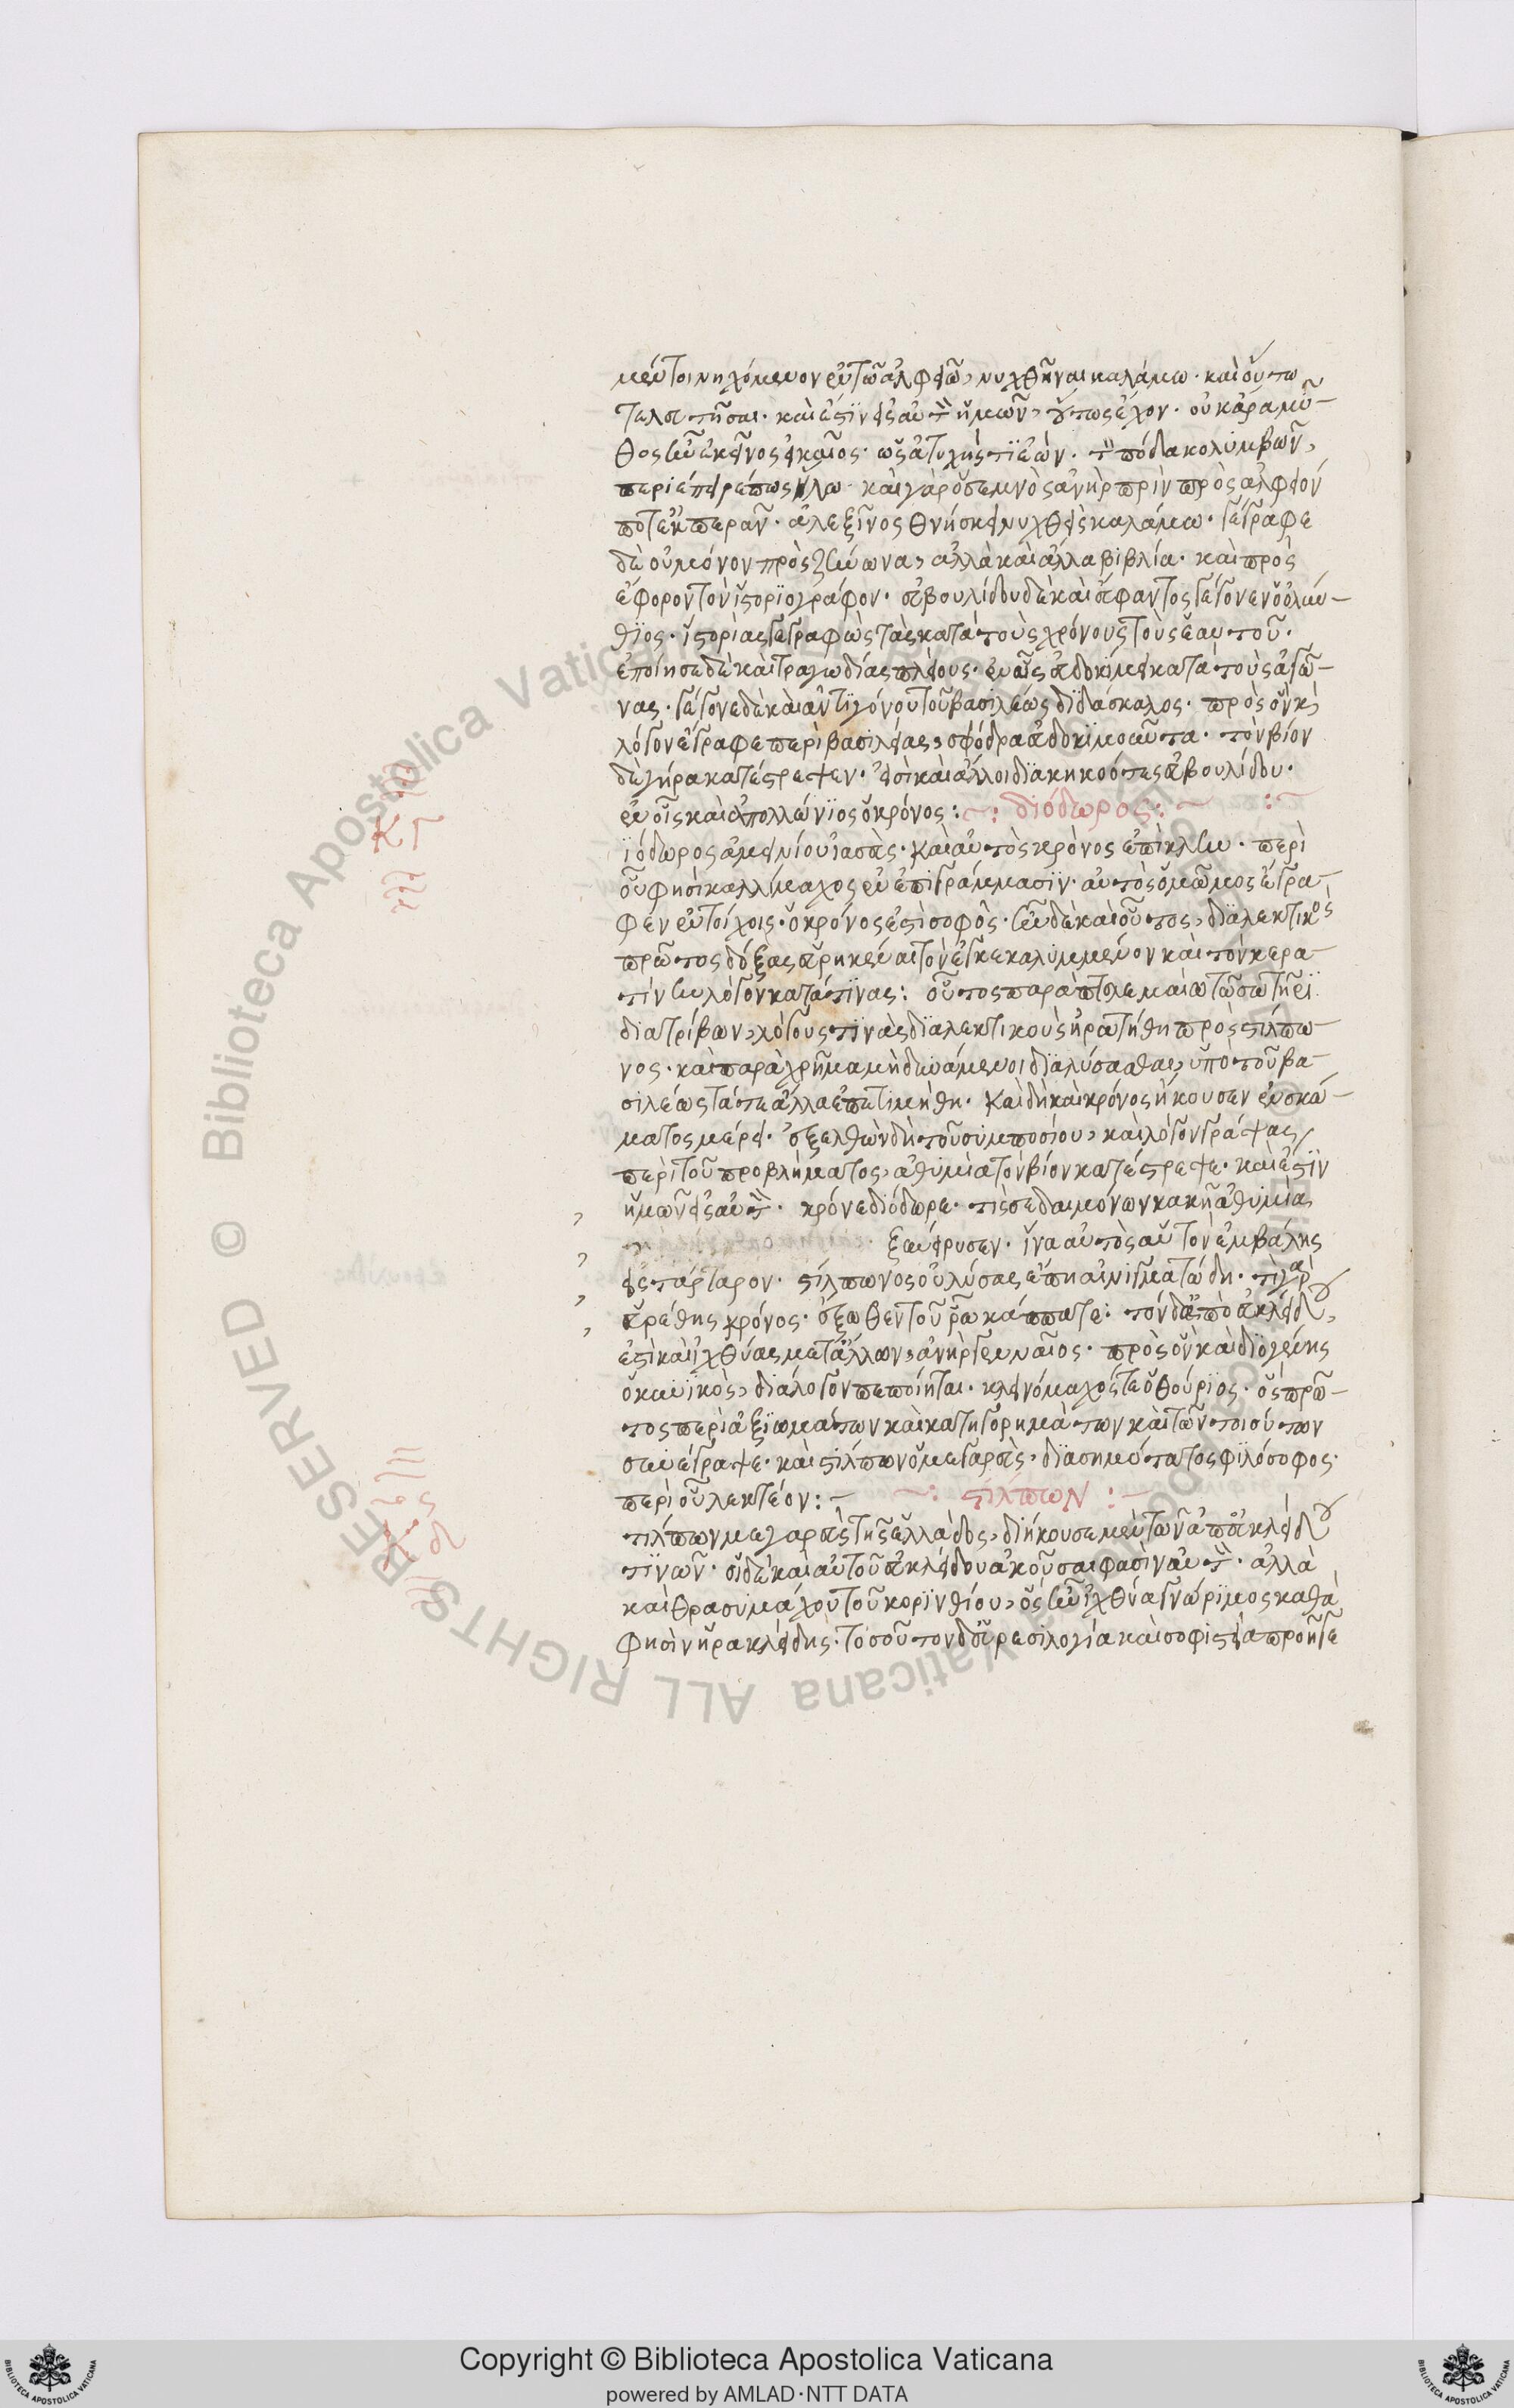 μέντοι νηχόμενον ἐν τῶ ἀλφειῶ, νυχθῆναι καλάμω· καὶ οὕτω
τελευτῆσαι· καὶ ἔστιν εἰς αὐτὸν ἡμῶν, οὕτως ἔχον· οὐκ ἄρα μῦ-
θος ἦν ἐκεῖνος εἰκαῖος· ὡς ἀτυχής τις ἐὼν· τὸν πόδα κολυμβῶν,
περιέπειρέ πως ἥλω· καὶ γὰρ ὁ σεμνὸς ἀνὴρ πρὶν πρὸς ἀλφειόν
ποτ' ἐκπερᾶν· ἀλεξῖνος θνήσκει νυχθεὶς καλάμω· γέγραφε
δὲ οὐ μόνον πρὸς ζήνωνα, ἀλλὰ καὶ ἄλλα βιβλία· καὶ πρὸς
ἔφορον τὸν ἱστοριογράφον· εὐβουλίδου δὲ καὶ εὔφαντος γέγονεν ὁ ὀλύν-
θιος· ἱστορίας γεγραφὼς τὰς κατὰ τοὺς χρόνους τοὺς ἑαυτοῦ·
ἐποίησε δὲ καὶ τραγωδίας πλείους· ἐν αἷς εὐδοκίμει κατὰ τοὺς ἀγῶ-
νας· γέγονε δὲ καὶ ἀντιγόνου τοῦ βασιλέως διδάσκαλος· πρὸς ὃν καὶ
λόγον ἔγραφε περὶ βασιλείας, σφόδρα εὐδοκιμοῦντα· τὸν βίον
δὲ γήρα κατέστρεψεν· εἰσὶ καὶ ἄλλοι διακηκοότες εὐβουλίδου·
ἐν οἷς καὶ ἀπολλώνιος ὁ κρόνος: ~: διόδωρος: ~ :~
ιόδωρος ἀμεινίου ἰασεὺς· καὶ αὐτὸς κρόνος ἐπίκλην· περὶ
οὗ φησὶ καλλίμαχος ἐν ἐπιγράμμασιν· αὐτὸς ὁ μῶμος ἔγρα-
φεν ἐν τοίχοις· ὁ κρόνος ἐστὶ σοφός· ἦν δὲ καὶ οὗτος, διαλεκτικὸς
πρῶτος δόξας εὑρηκέναι τὸν ἐγκεκαλυμμένον καὶ τὸν κερα-
τίνην λόγον κατά τινας: οὗτος παρὰ πτολεμαίω τῶ σωτῆρι
διατρίβων, λόγους τινὰς διαλεκτικοὺς ἠρωτήθη πρὸς στίλπω-
νος· καὶ παραχρῆμα μὴ δυνάμενοι διαλύσασθαι, ὑπὸ τοῦ βα-
σιλέως τά τε ἄλλα ἐπετιμήθη· καὶ δὴ καὶ κρόνος ἤκουσεν ἐν σκώ-
ματος μέρει· ἐξελθὼν δὴ τοῦ συμποσίου, καὶ λόγον γράψας
περὶ τοῦ προβλήματος, ἀθυμία τὸν βίον κατέστρεψε· καὶ ἔστιν
ἡμῶν εἰς αὐτὸν· κρόνε διόδωρε· τίς σε δαιμόνων κακῆ ἀθυμία
ξυνείρυσεν· ἵνα αὐτὸς αὑτὸν ἐμβάλης
εἰς τάρταρον· στίλπωνος οὐ λύσας ἔπη αἰνιγματώδη· τί γὰρ
εὑρέθης κρόνος· ἔξωθεν τοῦ ῥῶ κάππα τε: τῶν δὲ ἀπὸ εὐκλείδου,
ἐστὶ καὶ ἰχθύας μετάλλων, ἀνὴρ γενναῖος· πρὸς ὃν καὶ διογένης
ὁ κυνικὸς, διάλογον πεποίηται· κλεινόμαχός τε ὁ θούριος· ὃς πρῶ-
τος περὶ ἀξιωμάτων καὶ κατηγορημάτων καὶ τῶν τοιούτων
συνέγραψε· καὶ στίλπων ὁ μεγαρεὺς, διασημότατος φιλόσοφος·
περὶ οὗ λεκτέον: ~ ~: στίλπων :~
τίλπων μεγαρεὺς τῆς ἑλλάδος, διήκουσε μὲν τῶν ἀπὸ εὐκλείδου
τινῶν· οἱ δὲ καὶ αὐτοῦ εὐκλείδου ἀκοῦσαι φασὶν αὐτὸν· ἀλλὰ
καὶ θρασυμάχου τοῦ κορινθίου, ὃς ἦν ἰχθύα γνώριμος καθά
φησὶν ἡρακλείδης· τοσοῦτον δ' εὑρεσιλογία καὶ σοφιστεία προῆγε
Copyright © Biblioteca Apostolica Vaticana
powered by AMLAD·NTT DATA